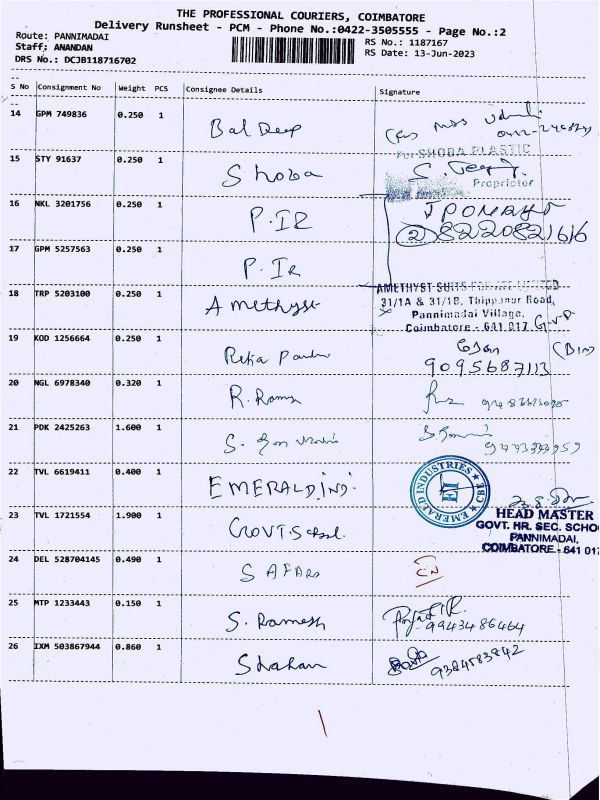 THE PROFESSIONAL COURIERS, COIMBATORE
Delivery Runsheet - PCM - Phone No.:0422-3505555 - Page No.:2
Route: PANNIMADAI
RS No.: 1187167
Staff: ANANDAN
RS Date: 13-Jun-2023
DRS No.: DCJB118716702
S No Consignment No Weight PCS Consignee Details Signature
14 GPM 749836 0.250 1 Bal Deep
15 STY 91637 0.250 1 Shoba
For SHOBA PLASTIC
Proprietor
16 NKL 3201756 0.250 1 P.IR
8220821616
17 GPM 5257563 0.250 1 P.IR
18 TRP 5203100 0.250 1 Amethyst
AMETHYST SUITS PRIVATE LIMITED
31/1A & 31/1B, Thippanur Road,
Pannimadai Village,
Coimbatore - 641 017
19 KOD 1256664 0.250 1
9095687113
20 NGL 6978340 0.320 1 R. Ramya
21 PDK 2425263 1.600 1
22 TVL 6619411 0.400 1 EMERALD IND.
EMERALD INDUSTRIES CBE
EI
23 TVL 1721554 1.900 1 GOVT. School
HEAD MASTER
GOVT. HR. SEC. SCHOO
PANNIMADAI,
COIMBATORE - 641 017
24 DEL 528704145 0.490 1
25 MTP 1233443 0.150 1 S. Ramesh
9943486464
26 IXM 503867944 0.860 1
9384583842